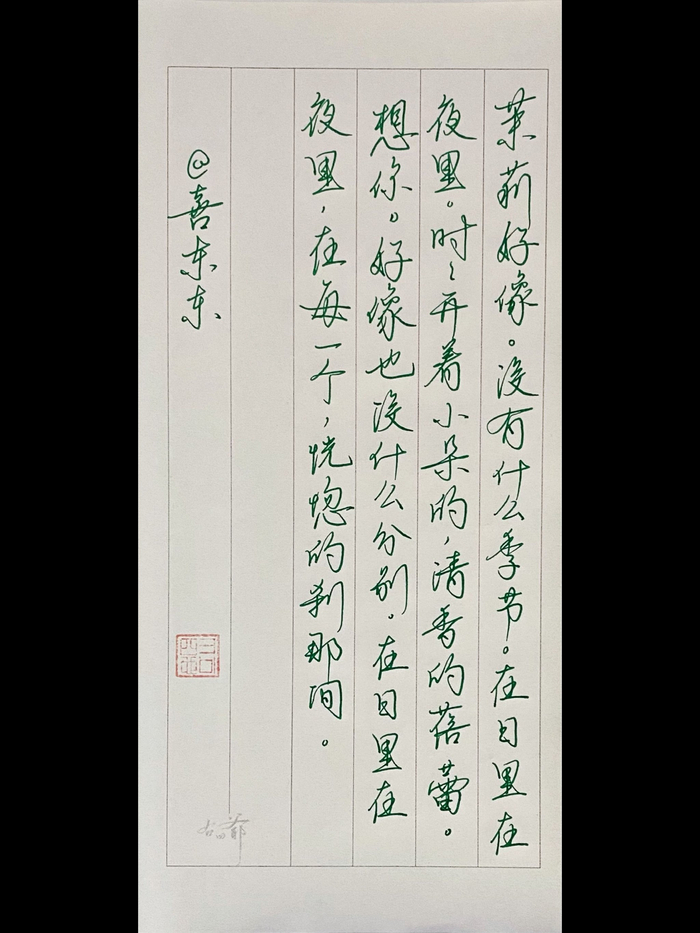 茉莉好像。没有什么季节。在日里在
夜里。时々开着小朵的，清香的蓓蕾。
想你。好像也没什么分别。在日里在
夜里，在每一个，恍惚的刹那间。
@喜东东